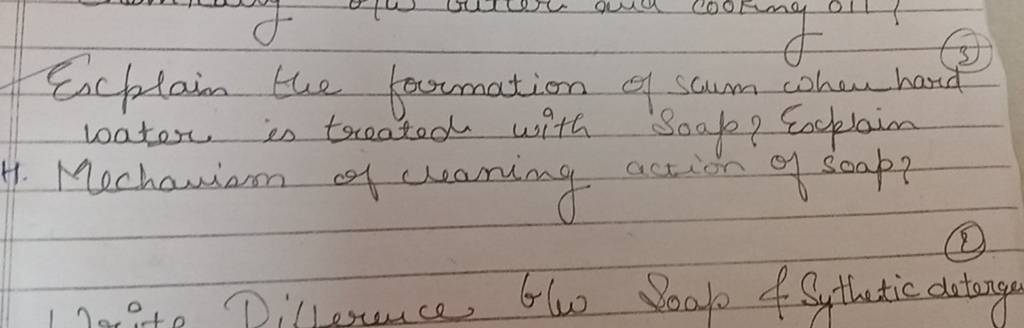 b/w butter and cooking oil?
3
Explain the formation of scum when hard
water is treated with Soap? Explain
H. Mechanism of cleaning action of soap?
2
Write Difference b/w Soap & Sythetic deterge